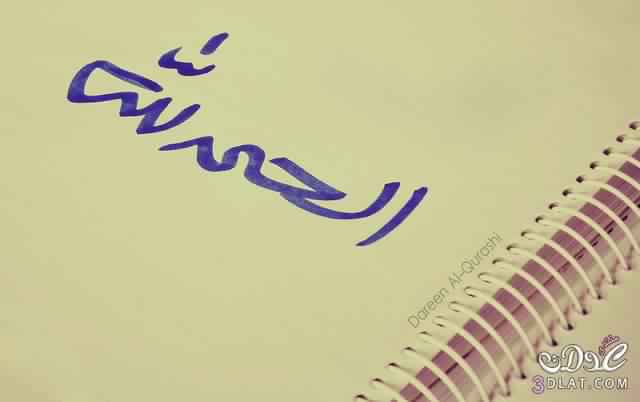 الحمد لله
Dareen Al-Qurashi
عدلات
3DLAT.COM